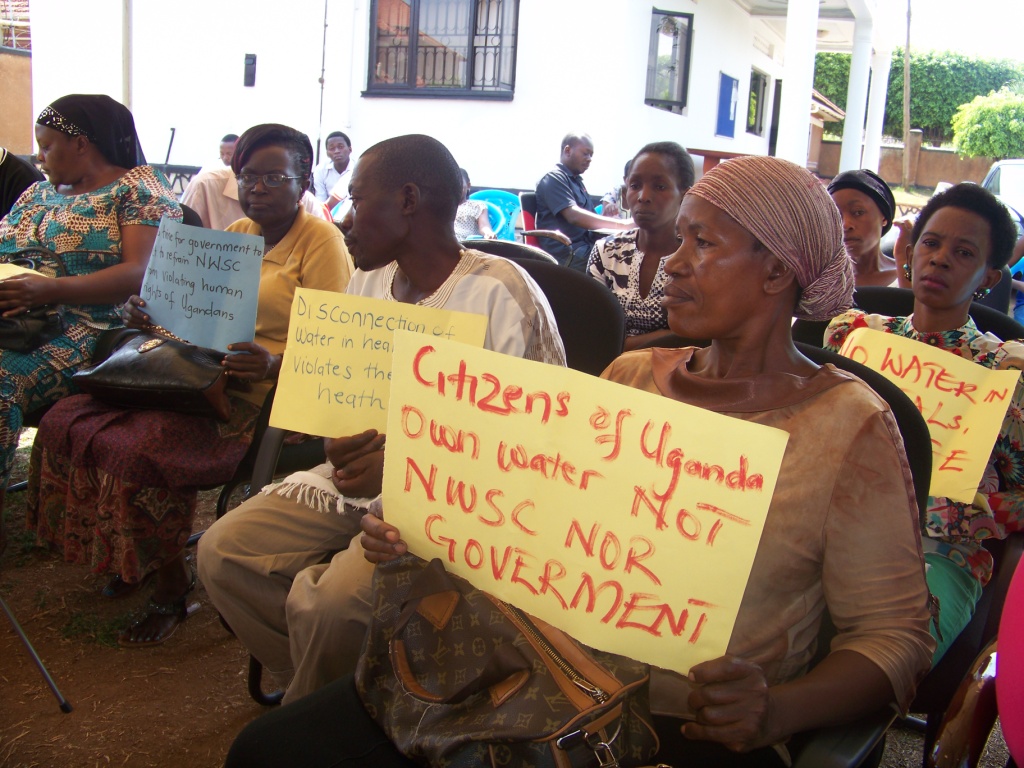 for government
to refrain NWSC
violating human
rights of Ugandans
Disconnection of
Water in
Violates the
heath
Citizens of Uganda
Own water NOT
NWSC NOR
GOVERMENT
WATER IN